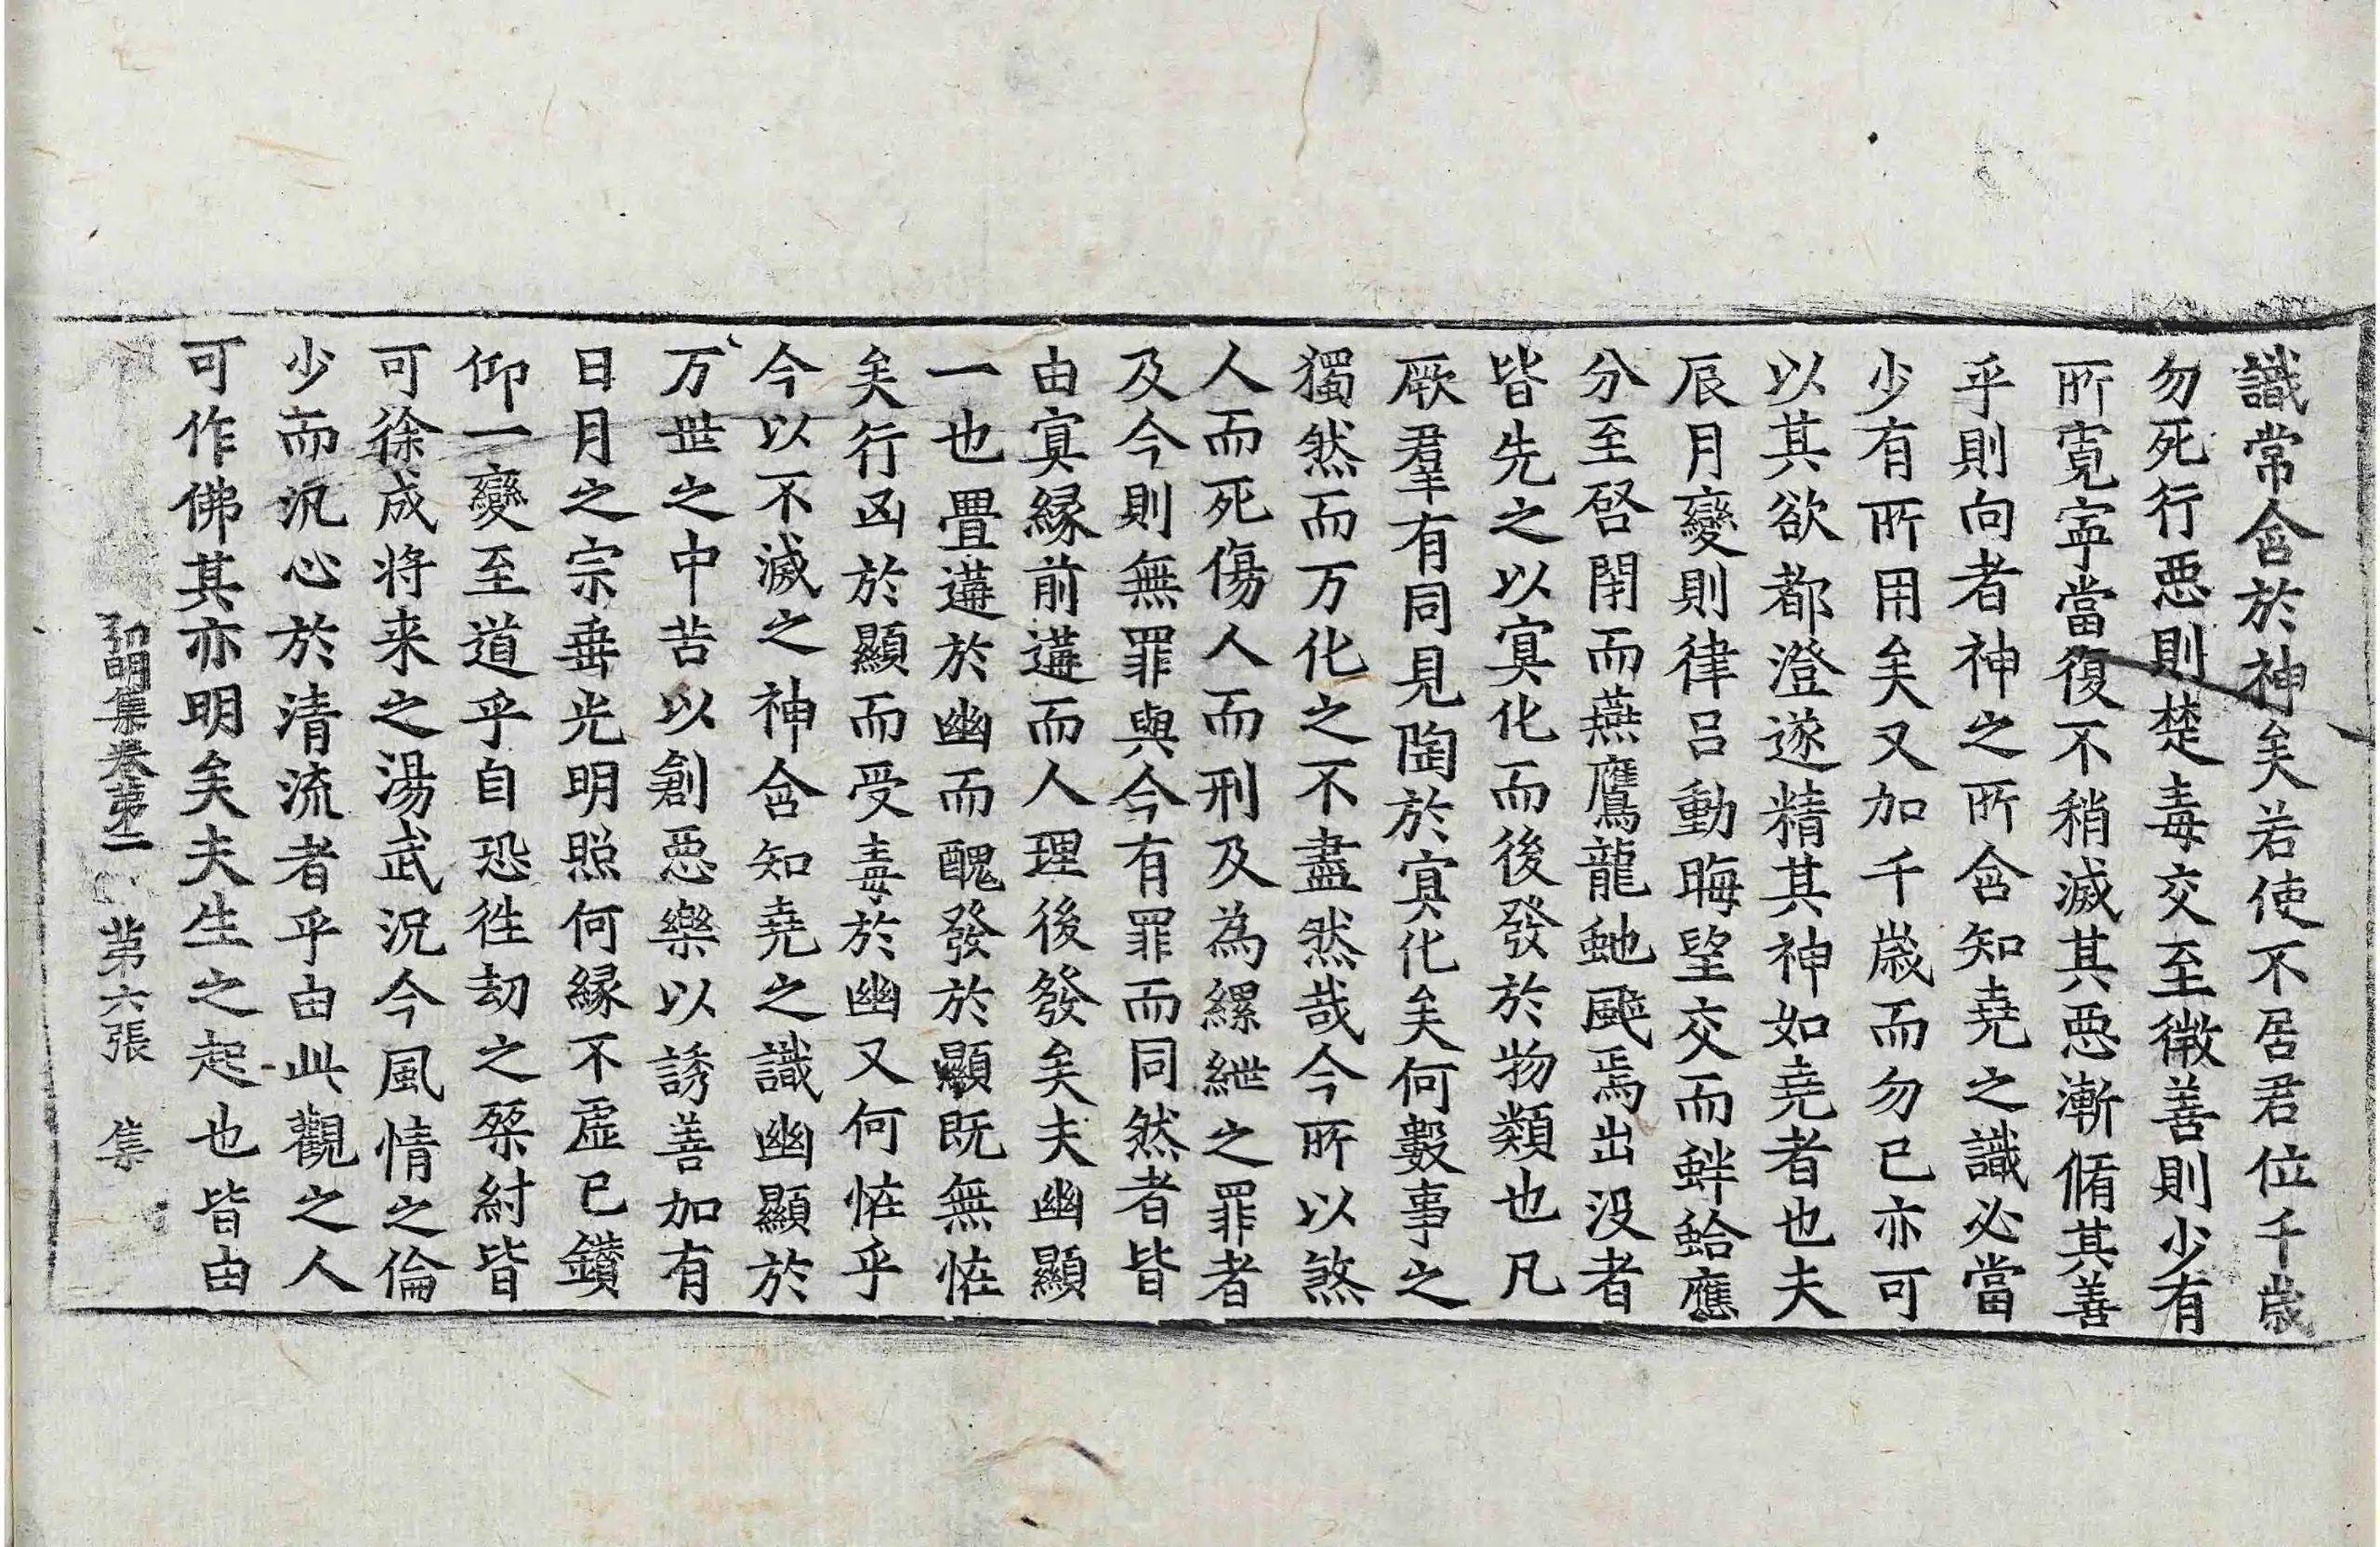 識常含於神矣若使不居君位千歲
勿死行惡則楚毒交至微善則少有
所寬寜當復不稍滅其惡漸脩其善
乎則向者神之所含知堯之識必當
少有所用矣又加千歲而勿已亦可
以其欲都澄遂精其神如堯者也夫
辰月變則律呂動晦望交而蚌蛤應
分至啓閇而燕鷹龍虵颷焉出没者
皆先之以㝠化而後發於物類也凡
厥羣有同見陶於㝠化矣何數事之
獨然而万化之不盡然哉今所以煞
人而死傷人而刑及為縲紲之罪者
及今則無罪與今有罪而同然者皆
由㝠縁前遘而人理後發矣夫幽顯
一也疊遘於幽而醜發於顯既無恠
矣行凶於顯而受毒於幽又何恠乎
今以不滅之神含知堯之識幽顯於
万世之中苦以創惡樂以誘善加有
日月之宗垂光明照何縁不虛已鑽
仰一變至道乎自恐徃劫之桀紂皆
可徐成将来之湯武況今風情之倫
少而汎心於清流者乎由此觀之人
可作佛其亦明矣夫生之起也皆由
弘明集卷第二 第六張 集